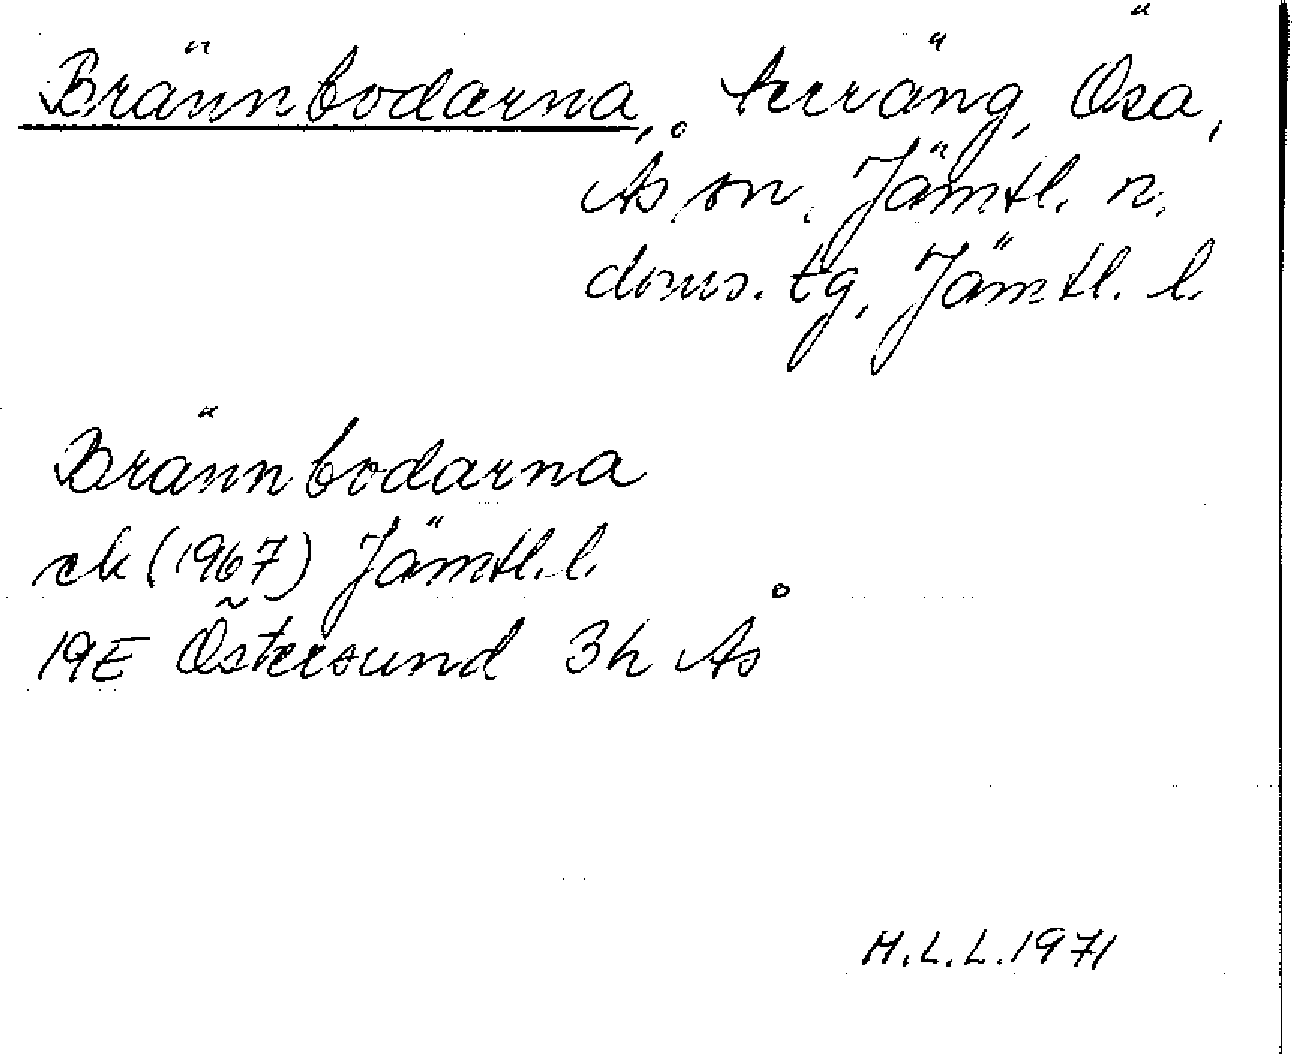 Brännbodarna, terräng, Ösa,
Ås sn, Jämtl. n.
doms. tg, Jämtl. l.
Brännbodarna
ek (1967) Jämtl. l.
19E Östersund 3h Ås
H.L.L. 1971